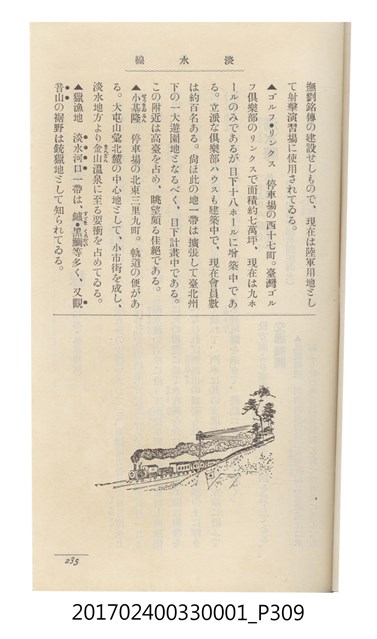 淡水線
撫劉銘傳の建設せしもので、現在は陸軍用地とし
て射擊演習場に使用されてゐる。
▲ゴルフ•リンクス 停車場の西十七町。臺灣ゴル
フ俱樂部のリンクスで面積約七萬坪、現在は九ホ
ールのみであるが目下十八ホールに增築中であ
る。立派な俱樂部ハウスも建築中で、現在會員數
は約百名ある。尙ほ此の地一帶は擴張して臺北州
下の一大遊園地となるべく、目下計畫中である。
この附近は高臺を占め、眺望頗る佳絕である。
▲小基隆 停車場の北東三里九町。軌道の便があ
る。大屯山彙北麓の中心地として、小市街を成し、
淡水地方より金山溫泉に至る要衝を占めてゐる。
▲獵漁地 淡水河口一帶は、鱸•黑鯛等多く、又觀
音山の裾野は銃獵地として知られてゐる。
235
201702400330001_P309